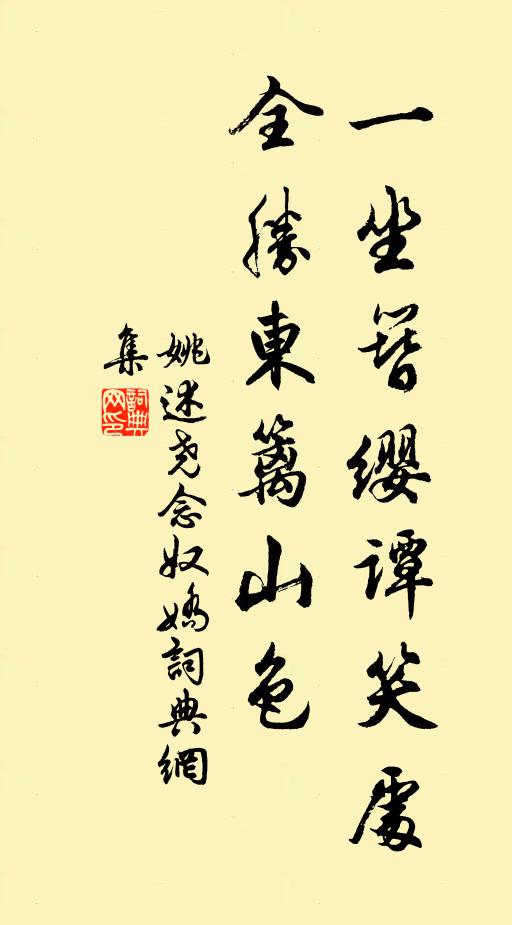 一坐簪纓譚笑處
全勝東籬山色
姚述堯念奴嬌詞典網
集
詞典
网印